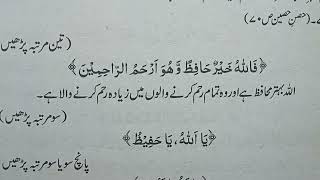 ۷۔ (حصنِ حصین ص ۷۰)
(تین مرتبہ پڑھیں
﴿فَاللهُ خَيْرٌ حَافِظًا وَّهُوَ اَرْحَمُ الرَّاحِمِيْنَ﴾
اللہ بہتر محافظ ہے اور وہ تمام رحم کرنے والوں میں زیادہ رحم کرنے والا ہے۔
(سو مرتبہ پڑھیں
﴿يَا اَللهُ، يَا حَفِيْظُ﴾
پانچ سو یا سو مرتبہ پڑھیں